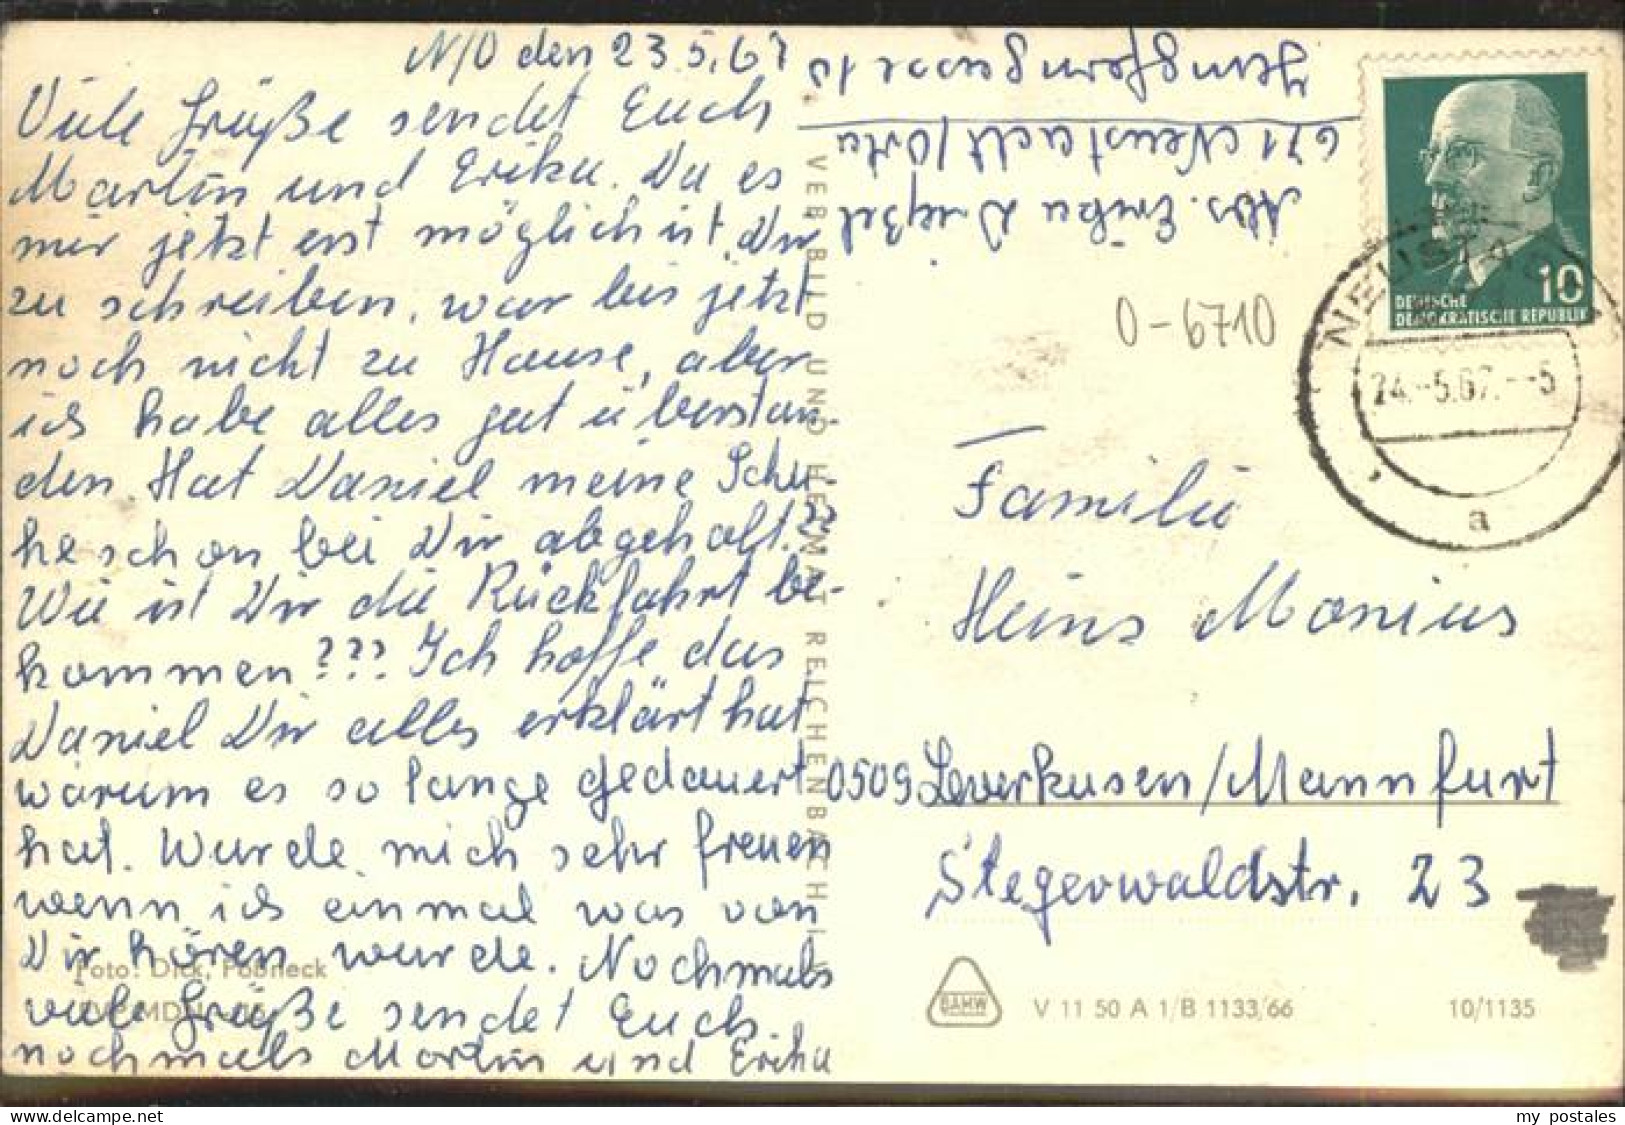 N/O den 23.5.67
Viele Grüße sendet Euch
Martin und Erika. Da es
mir jetzt erst möglich ist, Dir
zu schreiben, war bis jetzt
noch nicht zu Hause, aber
ich habe alles gut überstan-
den. Hat Daniel meine Schu-
he schon bei Dir abgeholt.??
Wie ist Dir die Rückfahrt be-
kommen??? Ich hoffe das
Daniel Dir alles erklärt hat
warum es so lange gedauert
hat. Wurde mich sehr freuen
wenn ich einmal was von
Dir hören wurde. Nochmals
viele Grüße sendet Euch
nochmals Martin und Erika
Foto: Dick, Pößneck
VEB BILD UND HEIMAT REICHENBACH I. V.
Abs. Erika Dreßel
671 Neustadt/Orla
Jungferngasse 10
DEUTSCHE
DEMOKRATISCHE REPUBLIK
10
NEUSTADT
24.-5.67.--5
a
O-6710
Familie
Heins Monius
0509 Leverkusen/Mannfurt
Stegerwaldstr. 23
V 11 50 A 1/B 1133/66
10/1135
my postales